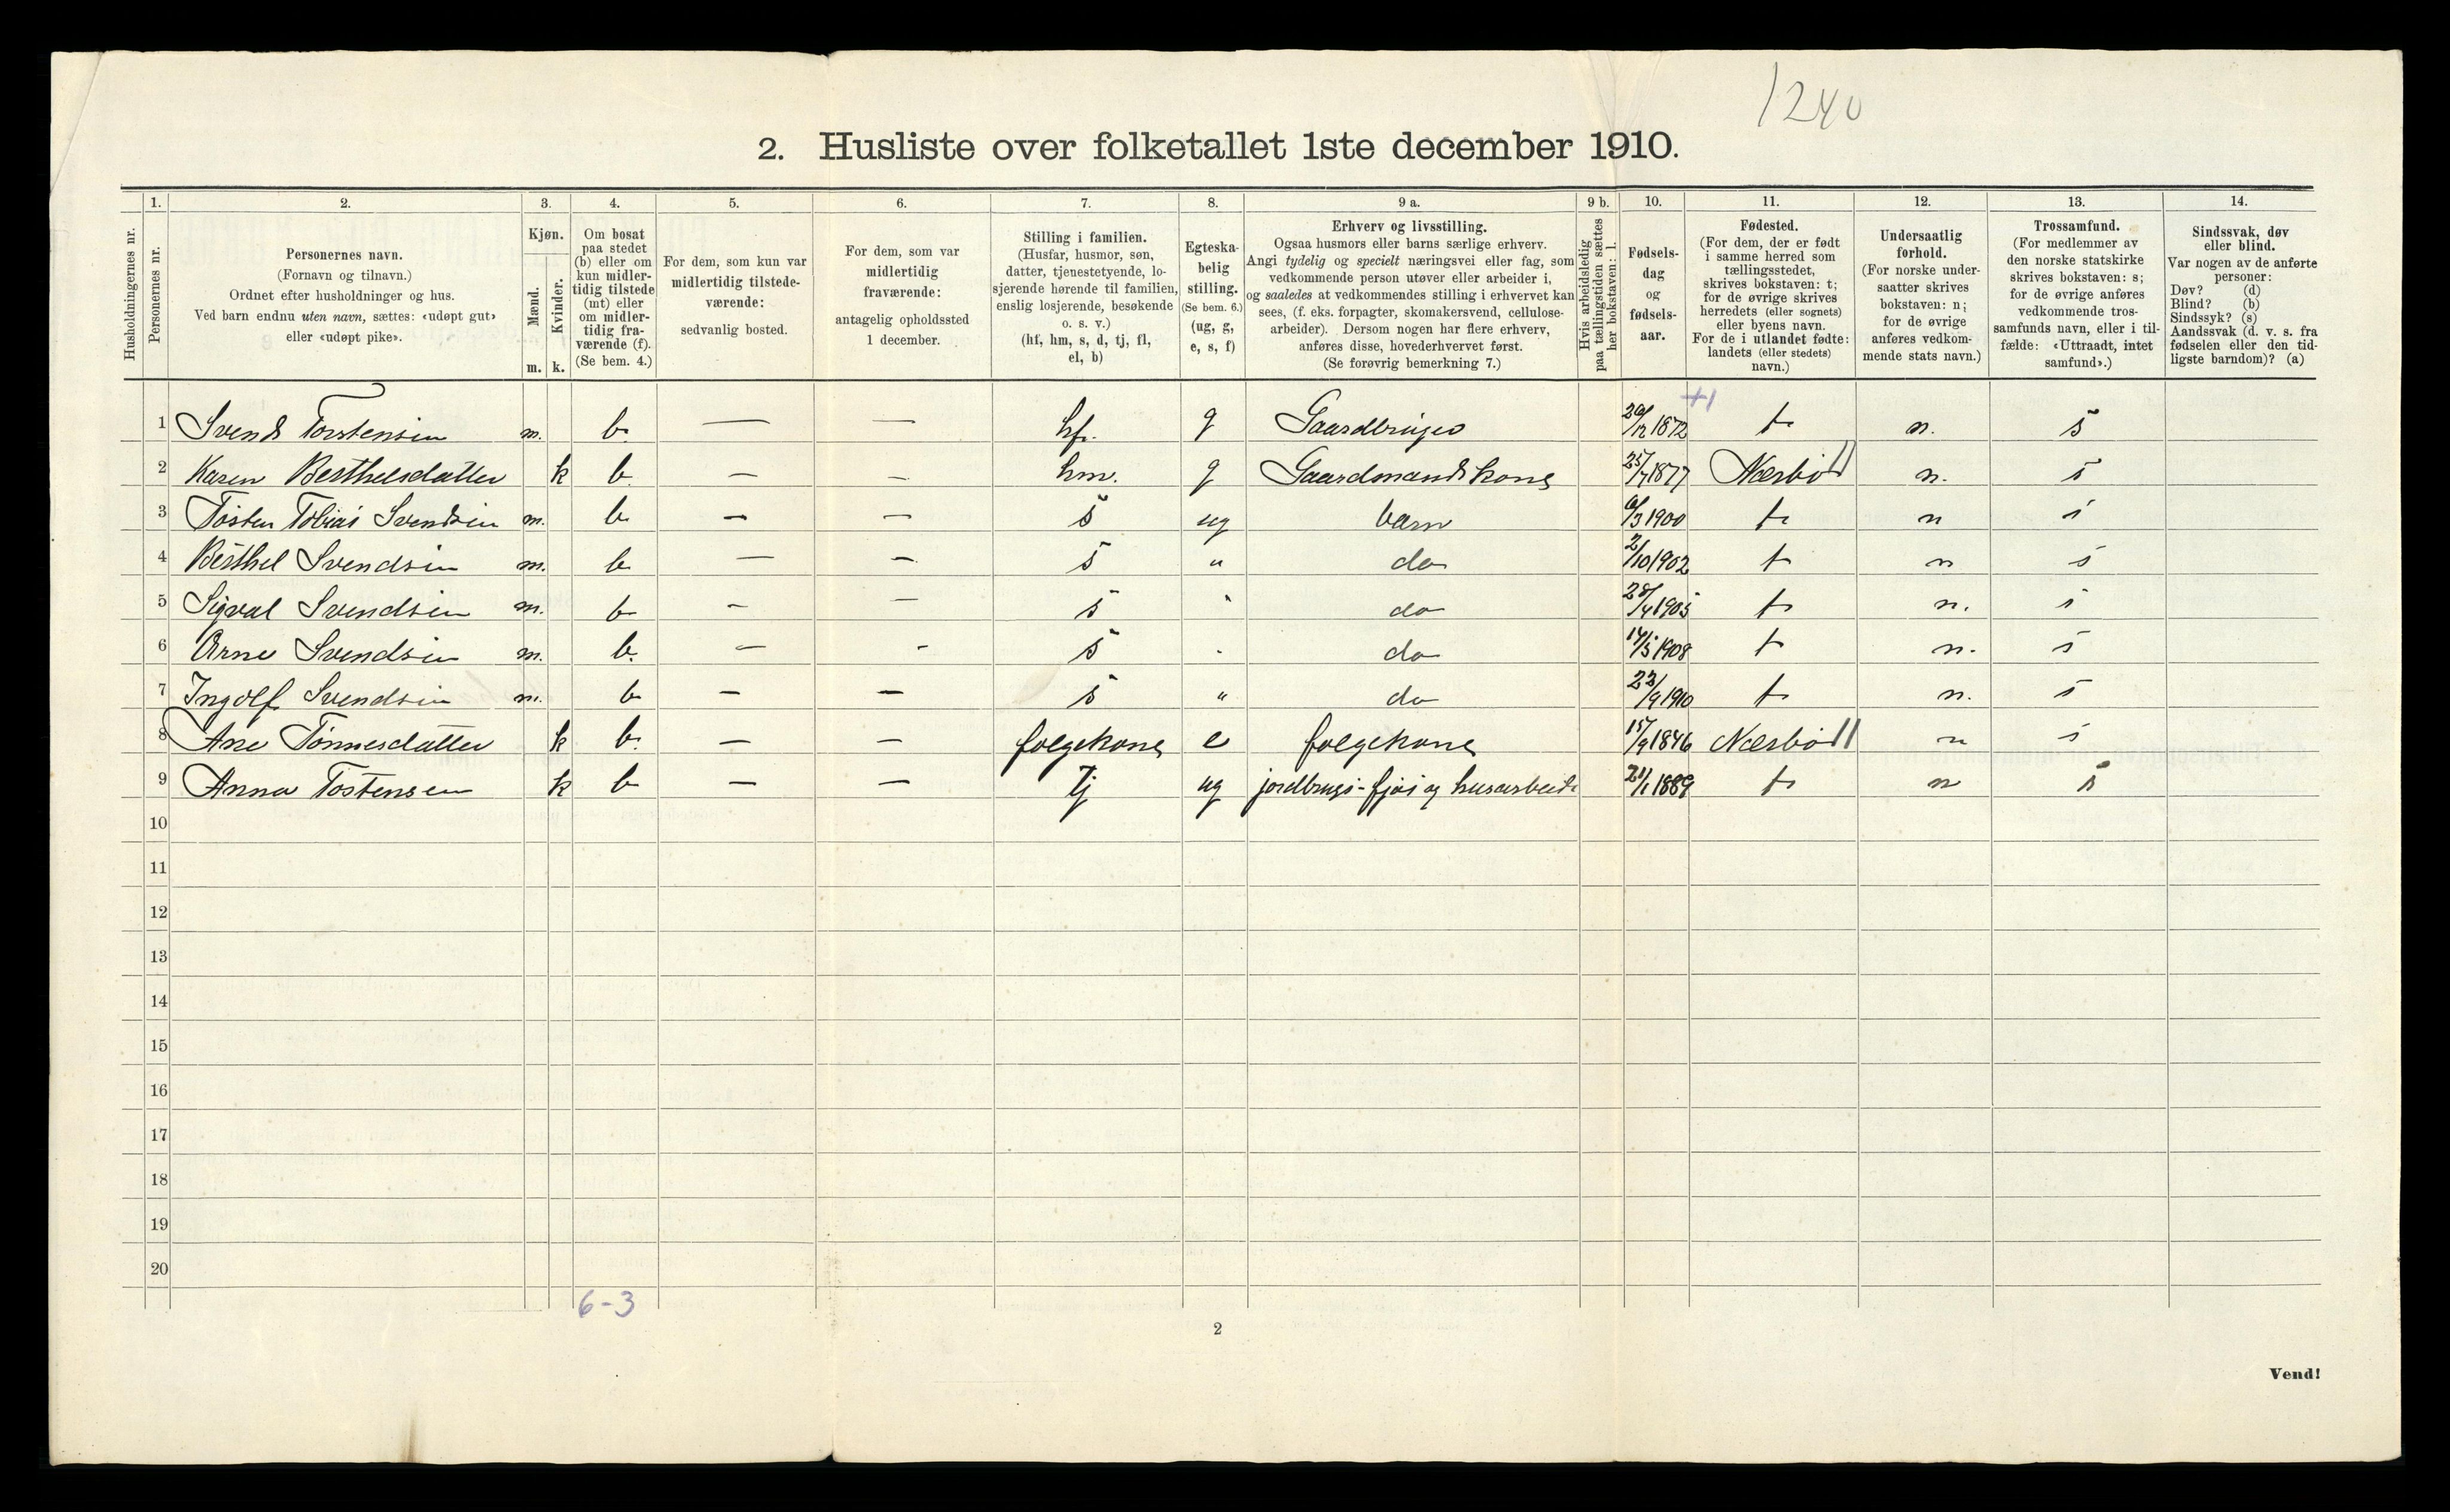 1240
2. Husliste over folketallet 1ste december 1910.
Husholdningernes nr.
1. Personernes nr.
2. Personernes navn.
(Fornavn og tilnavn.)
Ordnet efter husholdninger og hus.
Ved barn endnu uten navn, sættes: «udøpt gut»
eller «udøpt pike».
3. Kjøn.
Mænd. m.
Kvinder. k.
4. Om bosat
paa stedet
(b) eller om
kun midler-
tidig tilstede
(mt) eller
om midler-
tidig fra-
værende (f).
(Se bem. 4.)
5. For dem, som kun var
midlertidig tilstede-
værende:
sedvanlig bosted.
6. For dem, som var
midlertidig
fraværende:
antagelig opholdssted
1 december.
7. Stilling i familien.
(Husfar, husmor, søn,
datter, tjenestetyende, lo-
sjerende hørende til familien,
enslig losjerende, besøkende
o. s. v.)
(hf, hm, s, d, tj, fl,
el, b)
8. Egteska-
belig
stilling.
(Se bem. 6.)
(ug, g,
e, s, f)
9 a. Erhverv og livsstilling.
Ogsaa husmors eller barns særlige erhverv.
Angi tydelig og specielt næringsvei eller fag, som
vedkommende person utøver eller arbeider i,
og saaledes at vedkommendes stilling i erhvervet kan
sees, (f. eks. forpagter, skomakersvend, cellulose-
arbeider). Dersom nogen har flere erhverv,
anføres disse, hovederhvervet først.
(Se forøvrig bemerkning 7.)
9 b. Hvis arbeidsledig
paa tællingstiden sættes
her bokstaven: l.
10. Fødsels-
dag
og
fødsels-
aar.
11. Fødested.
(For dem, der er født
i samme herred som
tællingsstedet,
skrives bokstaven: t;
for de øvrige skrives
herredets (eller sognets)
eller byens navn.
For de i utlandet fødte:
landets (eller stedets)
navn.)
12. Undersaatlig
forhold.
(For norske under-
saatter skrives
bokstaven: n;
for de øvrige
anføres vedkom-
mende stats navn.)
13. Trossamfund.
(For medlemmer av
den norske statskirke
skrives bokstaven: s;
for de øvrige anføres
vedkommende tros-
samfunds navn, eller i til-
fælde: «Uttraadt, intet
samfund».)
14. Sindssvak, døv
eller blind.
Var nogen av de anførte
personer:
Døv? (d)
Blind? (b)
Sindssyk? (s)
Aandssvak (d. v. s. fra
fødselen eller den tid-
ligste barndom)? (a)
1 Svend Torstensen m. b. — — hf. g Gaardbruger 1872 t n. s
2 Karen Berthelsdatter k b — — hm. g Gaardmandskone 25/7 1877 Nærbø n. s
3 Tosten Tobias Svendsen m. b — — s ug barn 6/3 1900 t n s
4 Berthel Svendsen m. b — — s " do 2/10 1902 t n s
5 Sigval Svendsen m. b — — s " do 28/4 1905 t n. s
6 Arne Svendsen m. b. — - s " do 14/5 1908 t n. s
7 Ingolf Svendsen m. b — — s " do 23/9 1910 t n. s
8 Ane Tønnesdatter k b. — — folgekone e folgekone 15/9 1846 Nærbø n s
9 Anna Tostensen k b — — Tj ug jordbrugs- fjøs og husarbeide 21/1 1889 t n s
10
11
12
13
14
15
16
17
18
19
20
6-3
2
Vend!